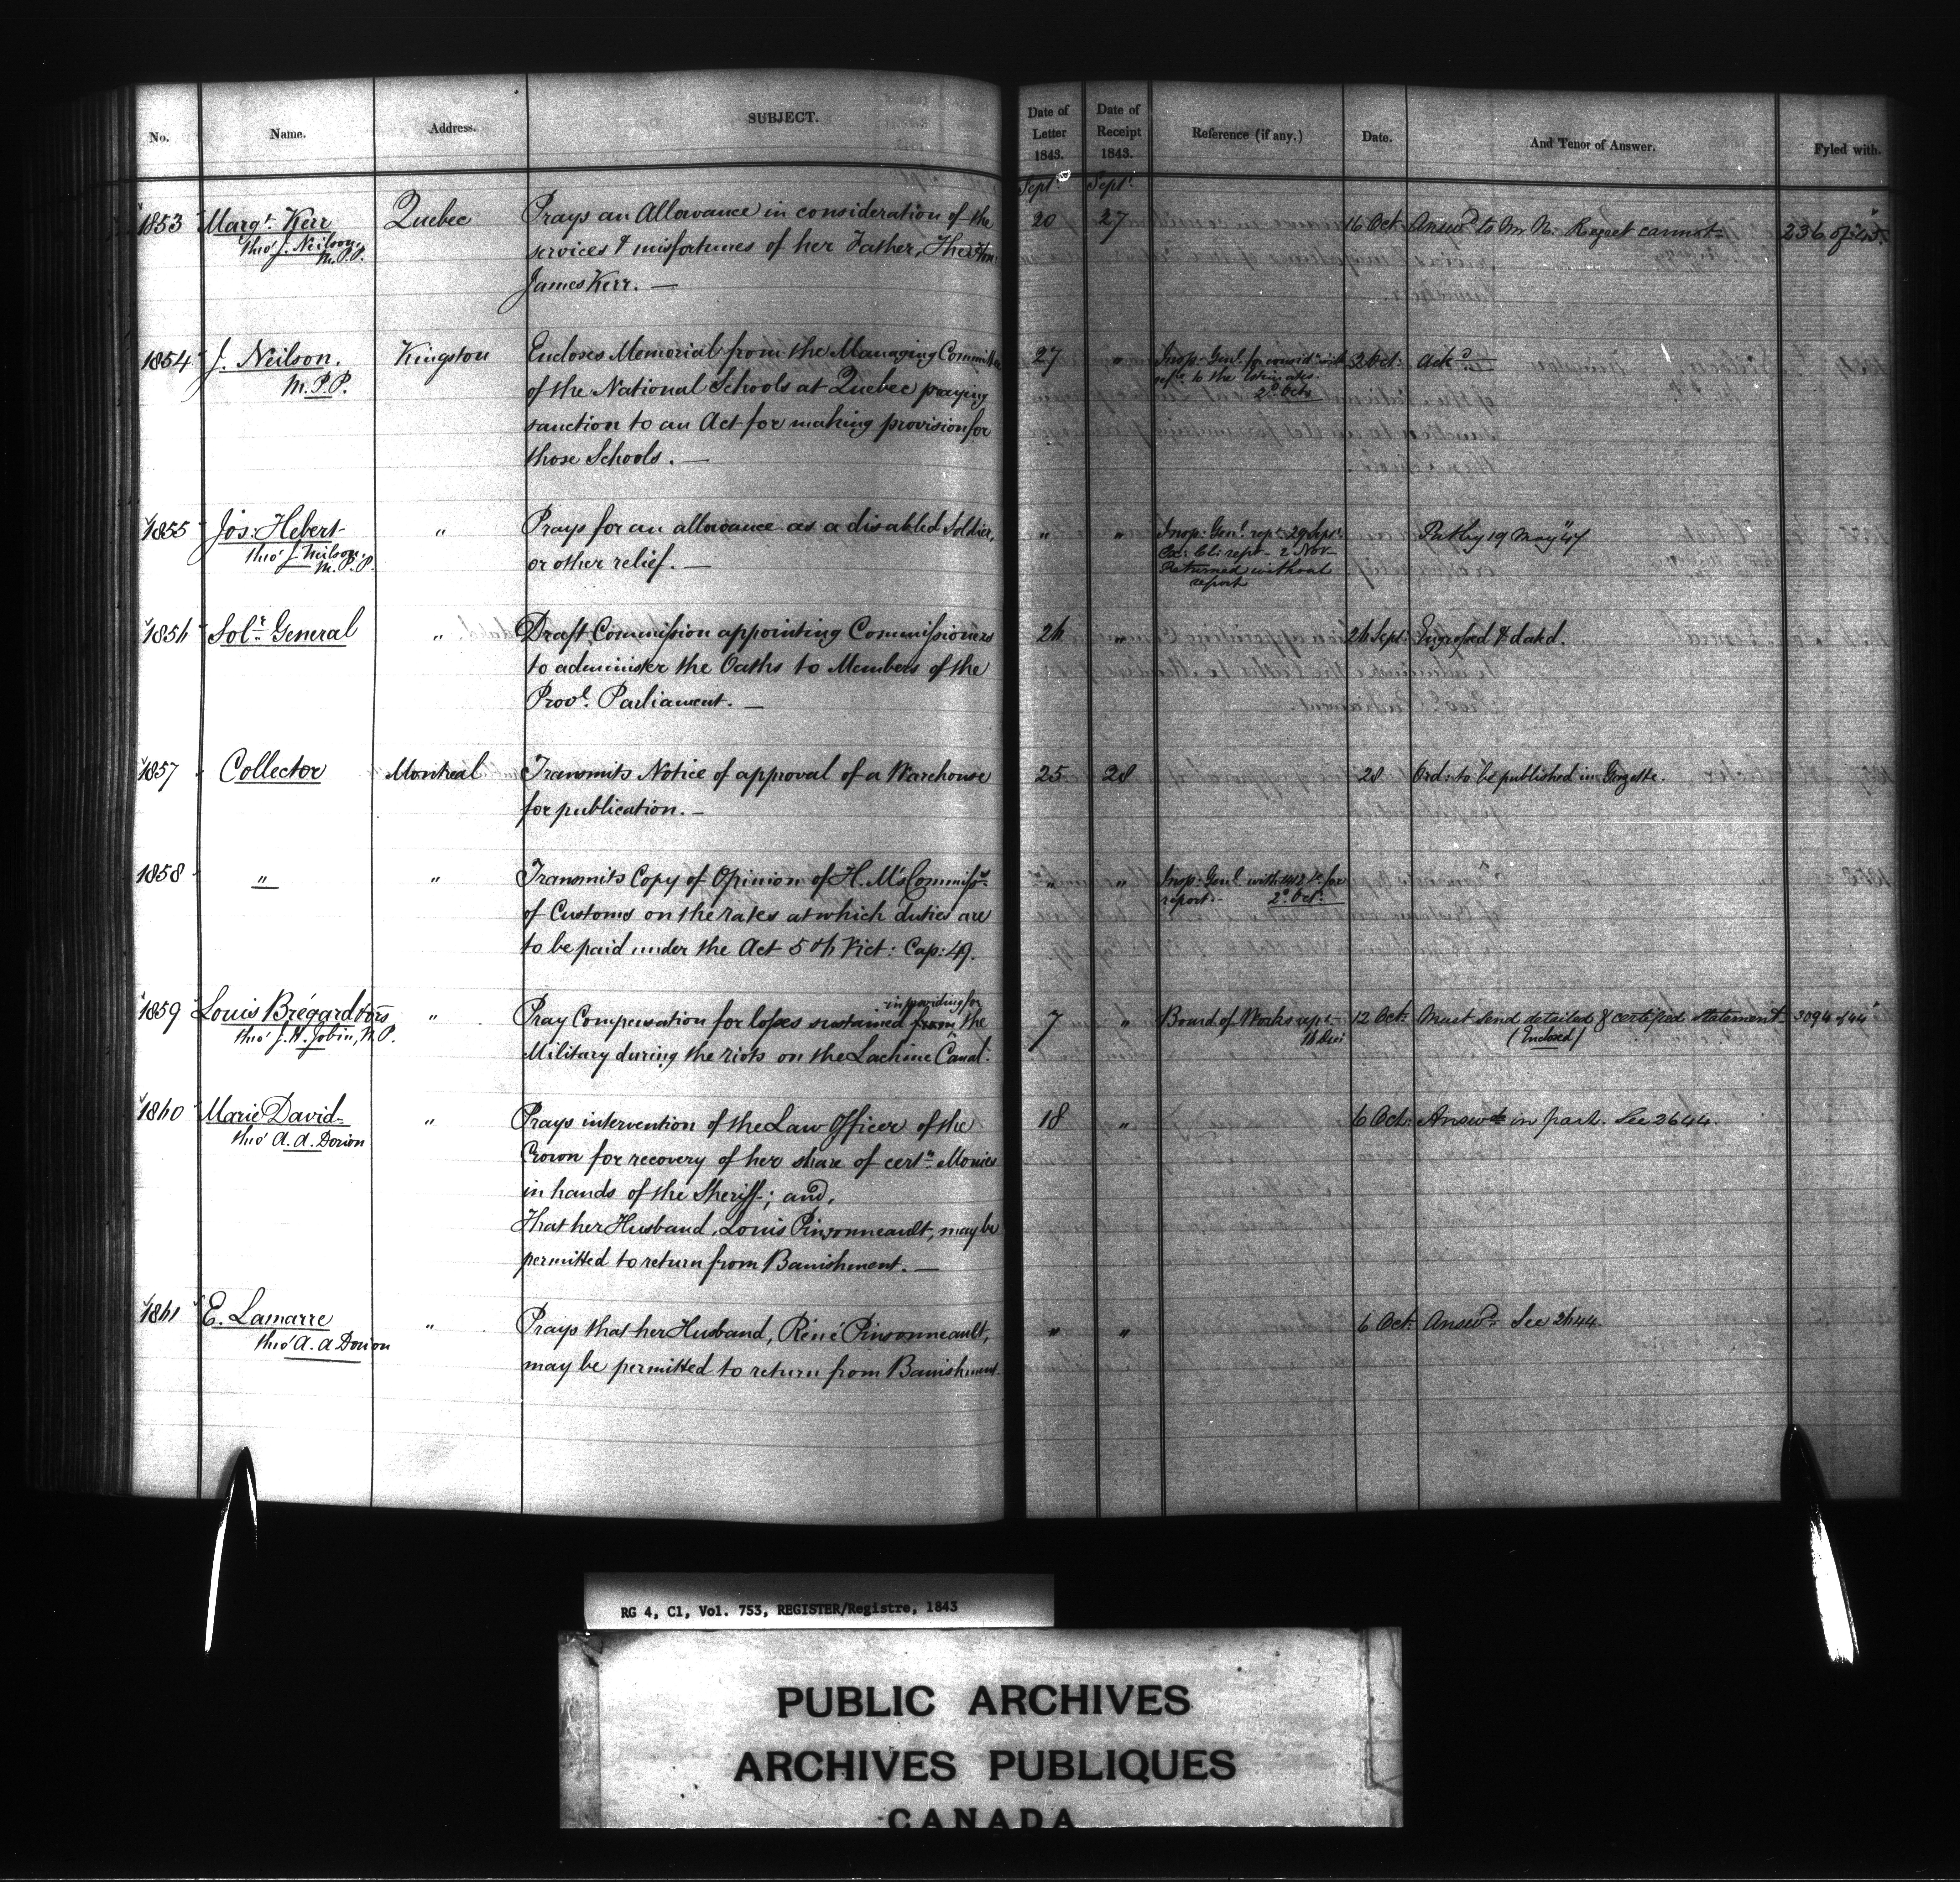 No. Name. Address. SUBJECT. Date of Letter 1843. Date of Receipt 1843. Reference (if any.) Date. And Tenor of Answer. Fyled with.
Sept. Sept.
1853 Margt. Kerr Quebec Prays an Allowance in consideration of the 20 27 16 Oct Answd. to Mr N. Regret cannot 236 of 45
thro' J. Neilson, services & misfortunes of her Father, The Hon:
M.P.P. James Kerr. —
1854 J. Neilson, Kingston Encloses Memorial from the Managing Committee 27 " Insp: Genl. for consid. with 3 Oct: Ackd.
M.P.P. of the National Schools at Quebec praying refce to the Estimates
2d Octr
sanction to an Act for making provision for
those Schools. —
1855 Jos: Hebert " Prays for an allowance as a disabled Soldier, " " Insp: Genl. rept 29 Sept. Put by 19 May 47
thro' J. Neilson, or other relief. — Ex: Cl: rept - 2 Nov
M.P.P. Returned without
report
1856 Solr. General " Draft Commission appointing Commissioners 26 " 26 Sept: Engrossed & datd.
to administer the Oaths to Members of the
Provl. Parliament. —
1857 Collector Montreal Transmits Notice of approval of a Warehouse 25 28 28 Ord: to be published in Gazette.
for publication. —
1858 " " Transmits Copy of Opinion of H.M's Commissrs. " " Insp: Genl. with for
of Customs on the rates at which duties are report. - 2d Oct.
to be paid under the Act 5th Vict: Cap: 49.
in providing for
1859 Louis Brégard & ors " Pray Compensation for losses sustained from the 7 " Board of Works rept 12 Oct: Must send detailed & certified statement 3094 of 44
thro' J. H. Jobin, N.P. Military during the riots on the Lachine Canal. 16 (Enclosed)
1860 Marie David " Prays intervention of the Law Officer of the 18 " 6 Oct: Answd. in part. See 2644.
thro' A. A. Dorion Crown for recovery of her share of certn. Monies
in hands of the Sheriff; and,
That her Husband, Louis Pinsonneault, may be
permitted to return from Banishment. —
1861 E. Lamarre " Prays that her Husband, Réné Pinsonneault, " " 6 Oct: Answd. See 2644.
thro' A. A Dorion may be permitted to return from Banishment.
RG 4, C1, Vol. 753, REGISTER/Registre, 1843
PUBLIC ARCHIVES
ARCHIVES PUBLIQUES
CANADA